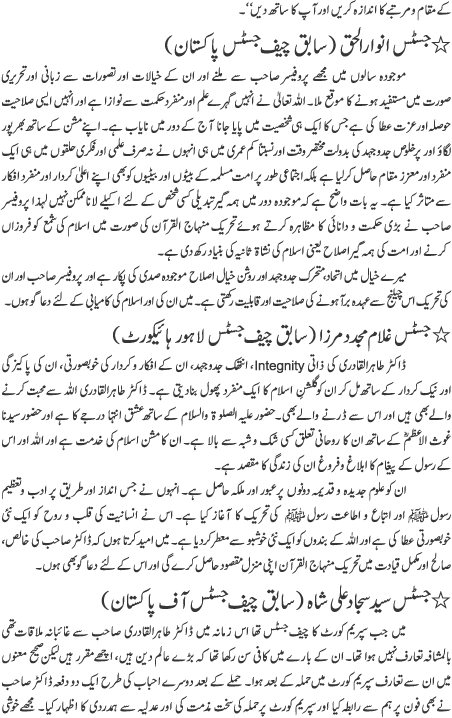 کے مقام و مرتبے کا اندازہ کریں اور آپ کا ساتھ دیں‘‘۔
☆ جسٹس انوار الحق (سابق چیف جسٹس پاکستان)
موجودہ سالوں میں مجھے پروفیسر صاحب سے ملنے اور ان کے خیالات اور تصورات سے زبانی اور تحریری
صورت میں مستفید ہونے کا موقع ملا۔ اللہ تعالیٰ نے انہیں گہرے علم اور منفرد حکمت سے نوازا ہے اور انہیں ایسی صلاحیت
حوصلہ اور عزت عطا کی ہے جس کا ایک ہی شخصیت میں پایا جانا آج کے دور میں نایاب ہے۔ اپنے مشن کے ساتھ بھرپور
لگاؤ اور پرخلوص جدوجہد کی بدولت مختصر وقت اور نسبتاً کم عمری میں ہی انہوں نے نہ صرف علمی اور فکری حلقوں میں ہی ایک
منفرد اور معزز مقام حاصل کر لیا ہے بلکہ اجتماعی طور پر امت مسلمہ کے بیٹوں اور بیٹیوں کو بھی اپنے اعلیٰ کردار اور منفرد افکار
سے متاثر کیا ہے۔ یہ بات واضح ہے کہ موجودہ دور میں ہمہ گیر تبدیلی کسی شخص کے لئے اکیلے لانا ممکن نہیں لہذا پروفیسر
صاحب نے بڑی حکمت و دانائی کا مظاہرہ کرتے ہوئے تحریک منہاج القرآن کی صورت میں اسلام کی شمع کو فروزاں
کرنے اور امت کی ہمہ گیر اصلاح یعنی اسلام کی نشاۃ ثانیہ کی بنیاد رکھ دی ہے۔
میرے خیال میں اتحاد، متحرک جدوجہد اور روشن خیال اصلاح موجودہ صدی کی پکار ہے اور پروفیسر صاحب اور ان
کی تحریک اس چیلنج سے عہدہ برآ ہونے کی صلاحیت اور قابلیت رکھتی ہے۔ میں ان کی اور اسلام کی کامیابی کے لئے دعا گو ہوں۔
☆ جسٹس غلام مجدد مرزا (سابق چیف جسٹس لاہور ہائیکورٹ)
ڈاکٹر طاہرالقادری کی ذاتی Integnity، انتھک جدوجہد، ان کے افکار و کردار کی خوبصورتی، ان کی پاکیزگی
اور نیک کردار کے ساتھ مل کر ان کو گلشنِ اسلام کا ایک منفرد پھول بنا دیتی ہے۔ ڈاکٹر طاہرالقادری اللہ سے محبت کرنے
والے بھی ہیں اور اس سے ڈرنے والے بھی۔ حضور علیہ الصلوۃ والسلام کے ساتھ عشق انتہا درجے کا ہے اور حضور سیدنا
غوث الاعظمؓ کے ساتھ ان کا روحانی تعلق کسی شک و شبہ سے بالا ہے۔ ان کا مشن اسلام کی خدمت ہے اور اللہ اور اس
کے رسول کے پیغام کا ابلاغ و فروغ ان کی زندگی کا مقصد ہے۔
ان کو علوم جدیدہ و قدیمہ دونوں پر عبور اور ملکہ حاصل ہے۔ انہوں نے جس انداز اور طریق پر ادب و تعظیم
رسول ﷺ اور اتباع و اطاعت رسول ﷺ کی تحریک کا آغاز کیا ہے۔ اس نے انسانیت کی قلب و روح کو ایک نئی
خوبصورتی عطا کی ہے اور اللہ کے بندوں کو ایک نئی خوشبو سے معطر کر دیا ہے۔ میں امید کرتا ہوں کہ ڈاکٹر صاحب کی خالص،
صالح اور مکمل قیادت میں تحریک منہاج القرآن اپنی منزل مقصود حاصل کرے گی اور اس کے لئے دعا گو بھی ہوں۔
☆ جسٹس سید سجاد علی شاہ (سابق چیف جسٹس آف پاکستان)
میں جب سپریم کورٹ کا چیف جسٹس تھا اس زمانہ میں ڈاکٹر طاہرالقادری صاحب سے غائبانہ ملاقات تھی
بالمشافہ تعارف نہیں تھا۔ ان کے بارے میں کافی سن رکھا تھا کہ بڑے عالم دین ہیں، اچھے مقرر ہیں لیکن صحیح معنوں
میں ان سے تعارف سپریم کورٹ میں حملہ کے بعد ہوا۔ حملے کے بعد دوسرے احباب کی طرح ایک دو دفعہ ڈاکٹر صاحب
نے بھی فون پر ہم سے رابطہ کیا اور سپریم کورٹ پر حملہ کی سخت مذمت کی اور عدلیہ سے ہمدردی کا اظہار کیا۔ مجھے خوشی